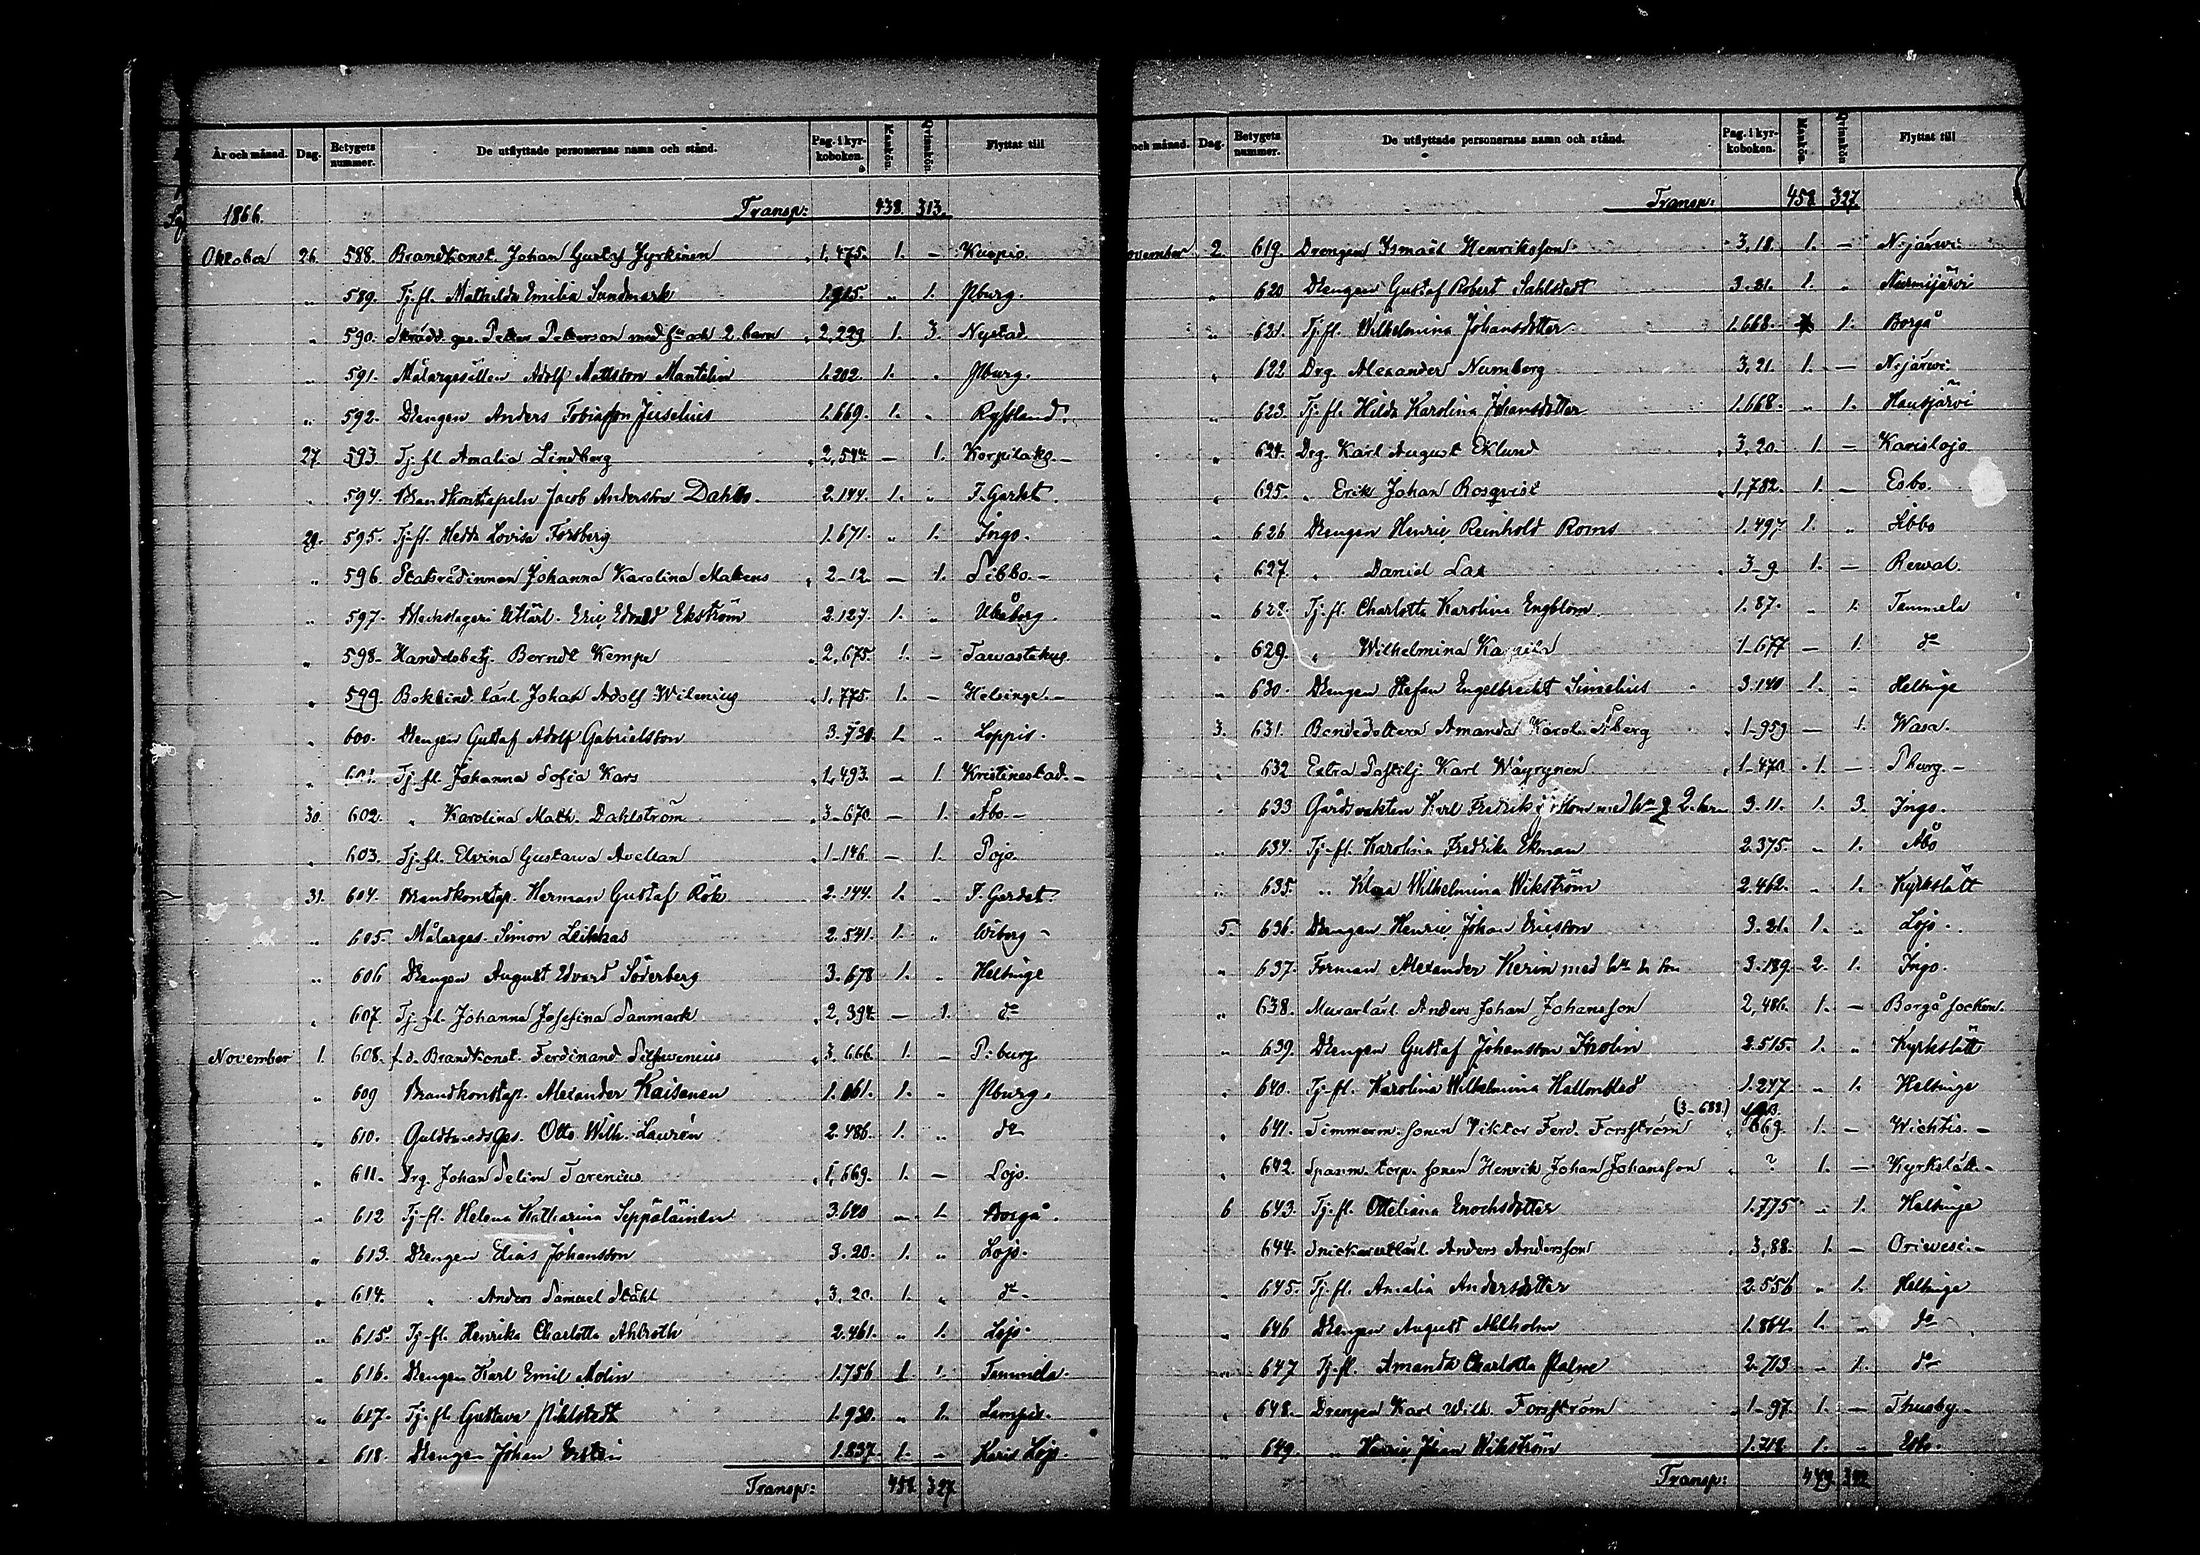 År och månad. Dag. Betygets nummer. De utflyttade personernas namn och stånd. Pag. i kyrkoboken. Mankön. Qvinnkön. Flyttat till
1866. Transp: 438. 313.
Oktober 26. 588. Brandkonst. Johan Gustaf Jyrkinen 1,475. 1. — Kuopio.
" 589. Tj. fl. Mathilda Emilia Sandmark " 1. Pburg.
" 590. Skrädd. ges. Petter Petterson med hu och 2. barn 2,229 1. 3. Nystad.
" 591. Målargesällen Adolf Mattsson Mantilin 1.202 1. " Pburg.
" 592. Drengen Anders Tobiasson Juselius 1.669. 1. " Ryssland.
27. 593. Tj. fl. Amalia Lindberg 2,544. — 1. Korpilaks. —
" 594. Brandkonstapeln Jacob Andersson Dahlbo. 2.144. 1. " F. Gardet.
29. 595. Tj. fl. Hedda Lovisa Forsberg 1.671. " 1. Ingo.
" 596. Statsrådinnan Johanna Karolina 2-12. — 1. Sibbo. —
" 597. Eric Edvard Ekström 2.127. 1. " Uleåborg.
" 598. Handelsbetj. Berndt Kempe 2,675. 1. — Tawastehus.
" 599. Bokbind. lärl. Johan Adolf Wilenius 1,775. 1. — Helsinge. —
" 600. Drengen Gustaf Adolf Gabrielsson 3.730 1. " Loppis.
" 601. Tj. fl. Johanna Sofia Kars 1,493. — 1. Kristinestad. —
30. 602. " Karolina Math. Dahlström 3-670 — 1. Åbo. —
" 603. Tj. fl. Elvina Gustava Avellan 1-146 — 1. Pojo.
31. 604. Brandkonstap. Herman Gustaf Rök 2.144. 1. " F. Gardet.
" 605. Målarges. Simon Leiknas 2.541. 1. " Wiborg —
" 606 Drengen August Edvard Söderberg 3.678 1. " Helsinge
" 607. Tj. fl. Johanna Josefina Sanmark 2,394. — 1. do
November 1. 608. f. d. Brandkonst. Ferdinand 3.666. 1. — P:burg
" 609 Brandkonstap. Alexander Kaisanen 1. 1. " Pburg.
" 610. Guldsmedsges. Otto Wilh. Laurén 2.486. 1. " do
" 611. Drg. Johan Selim Tarenius 1,669. 1. — Lojo.
" 612 Tj. fl. Helena Katharina Seppäläinen 3.640 — 1. Borgå.
" 613. Drengen Elias Johansson 3.20. 1. " Lojo.
" 614. " Anders Samuel Ståhl 3,20. 1. " do
" 615. Tj. fl. Henrika Charlotta Ahlroth 2.461. " 1. Lojo.
" 616. Drengen Karl Emil Molin 1.756 1 " Tammela.
" 617. Tj. fl. Gustava Pihlstedt 1.930. " 1. Lampis.
" 618. Drengen Johan 1.837. 1. — Karis Lojo.
Transp: 458. 327
och månad. Dag. Betygets nummer. De utflyttade personernas namn och stånd. Pag. i kyrkoboken. Mankön. Qvinnkön Flyttat till
Transp: 458 327.
ovember 2. 619. Drengen Ismael Henriksson 3,18. 1. — N:järwi.
" 620 Drengen Gustaf Robert Sahlstedt 3.21. 1. " Nurmijärvi
" 621. Tj. fl. Wilhelmina Johansdotter 1.668. 1. Borgå
" 622 Drg. Alexander Numberg 3,21. 1. — N:järwi.
" 623. Tj. fl. Hilda Karolina Johansdotter 1.668. " 1. Hausjärvi
" 624. Drg. Karl August Eklund 3,20. 1. — Karislojo
" 625. " Erik Johan Rosqvist 1,782. 1. — Esbo.
" 626 Drengen Henric Reinhold Roms 1.497 1. " Sibbo
" 627. " Daniel Lax 3-9 1. — Rewal.
" 628. Tj. fl. Charlotta Karolina Engblom 1.87. " 1. Tammela
" 629. " Wilhelmina 1-677 — 1. do
" 630. Drengen Stefan Engelbrecht Simelius 3.140 1. " Helsinge
3. 631. Bondedottern Amanda Karol. Åberg 1-959 — 1. Wasa.
" 632 Extra Postilj. Karl Wäyrynen 1-470 1. — P.burg. —
" 633 Gårdsvakten Karl med hu & 2. barn 3.11. 1. 3. Ingo.
" 634. Tj. fl. Karolina Fredrika Ekman 2.375. " 1. Åbo
" 635. " Klara Wilhelmina Wikström 2.462. " 1. Kyrkslätt
5. 636. Drengen Henric Johan Ericsson 3.21. 1. " Lojo.
" 637. Forman Alexander Kerin med hu & son 3.189. 2. 1. Ingo.
" 638. Murarlärl. Anders Johan Johansson 2,486. 1. — Borgå socken.
" 639. Drengen Gustaf Johansson Knolin 2.515. 1. " Kyrkslätt
" 640. Tj. fl. Karolina Wilhelmina Hallonblad 1.247 " 1. Helsinge
" 641. Timmerm. sonen Viktor Ferd. Forsström (3-688.) 669. 1. — Wichtis. —
" 642. Spanm. torp. sonen Henrik Johan Johansson ? 1. — Kyrkslätt. —
6 643. Tj. fl. Ottiliana Enochsdotter 1.775 " 1. Helsinge
644. Snickarelärl. Anders Andersson 3,88. 1. — Oriwesi. —
" 645. Tj. fl. Amalia Andersdotter 2.556 " 1. Helsinge
" 646 Drengen August Ahlholm 1.864. 1. " do
" 647 Tj. fl. Amanda Charlotta Palne 2.713 " 1. do
" 648. Drengen Karl Wilh. Forsström 1-97. 1. — Thusby —
" 649. " Henric Johan Wikström 1.712 1. " Esbo.
Transp: 479 342